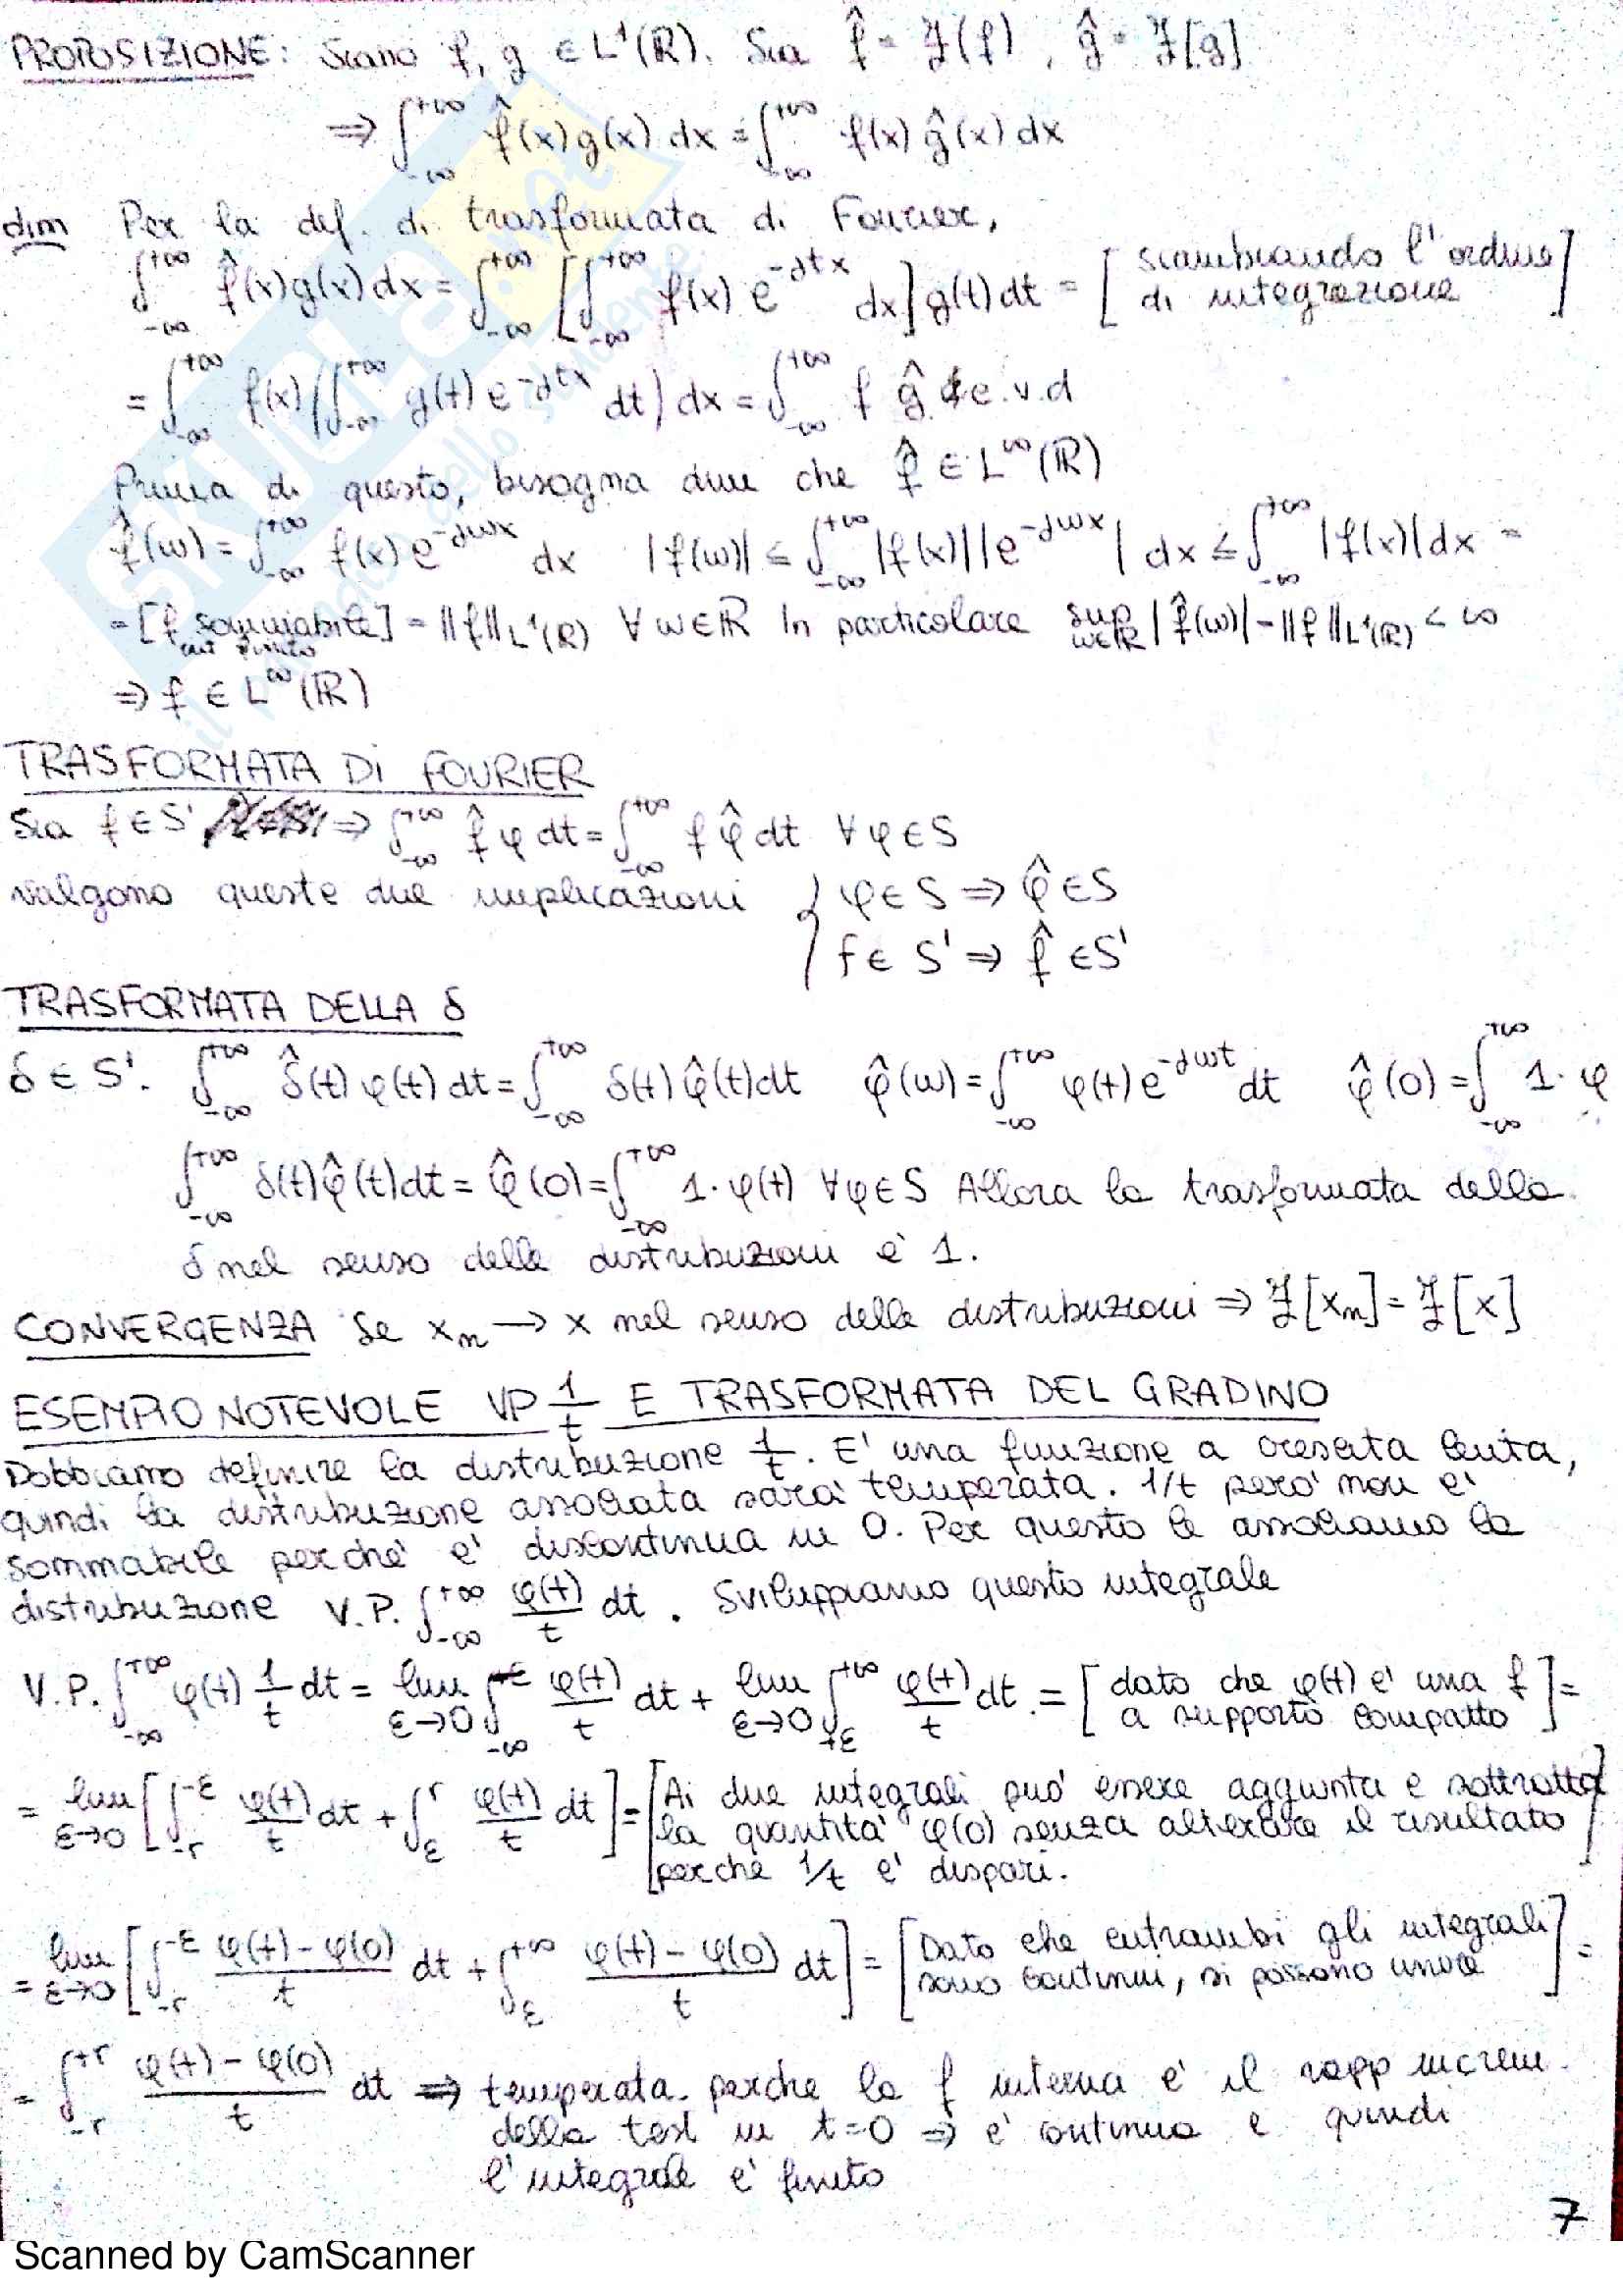 PROPOSIZIONE: Siano f, g ∈ L¹(ℝ). Sia f̂ = ℱ(f), ĝ = ℱ[g]
⇒ ∫_{-∞}^{+∞} f̂(x)g(x) dx = ∫_{-∞}^{+∞} f(x) ĝ(x) dx
dim Per la def. di trasformata di Fourier,
∫_{-∞}^{+∞} f̂(x)g(x)dx = ∫_{-∞}^{+∞} [∫_{-∞}^{+∞} f(x) e^{-jtx} dx] g(t) dt = [scambiando l'ordine di integrazione]
= ∫_{-∞}^{+∞} f(x) (∫_{-∞}^{+∞} g(t) e^{-jtx} dt) dx = ∫_{-∞}^{+∞} f ĝ c.v.d
Prima di questo, bisogna dire che f̂ ∈ L^∞(ℝ)
f̂(ω) = ∫_{-∞}^{+∞} f(x) e^{-jωx} dx |f(ω)| ≤ ∫_{-∞}^{+∞} |f(x)||e^{-jωx}| dx ≤ ∫_{-∞}^{+∞} |f(x)|dx =
= [f sommabile] = ||f||_{L¹(ℝ)} ∀ω∈ℝ In particolare sup_{ω∈ℝ} |f̂(ω)| - ||f||_{L¹(ℝ)} < ∞
⇒ f ∈ L^∞(ℝ)
TRASFORMATA DI FOURIER
Sia f ∈ S' ⇒ ∫_{-∞}^{+∞} f̂ φ dt = ∫_{-∞}^{+∞} f φ̂ dt ∀φ ∈ S
valgono queste due implicazioni { φ ∈ S ⇒ φ̂ ∈ S
f ∈ S' ⇒ f̂ ∈ S'
TRASFORMATA DELLA δ
δ ∈ S'. ∫_{-∞}^{+∞} δ̂(t) φ(t) dt = ∫_{-∞}^{+∞} δ(t) φ̂(t)dt φ̂(ω) = ∫_{-∞}^{+∞} φ(t) e^{-jωt} dt φ̂(0) = ∫_{-∞}^{+∞} 1·φ
∫_{-∞}^{+∞} δ(t)φ̂(t)dt = φ̂(0) = ∫_{-∞}^{+∞} 1·φ(t) ∀φ∈S Allora la trasformata della
δ nel senso delle distribuzioni è 1.
CONVERGENZA Se xₙ → x nel senso delle distribuzioni ⇒ ℱ[xₙ] = ℱ[x]
ESEMPIO NOTEVOLE VP 1/t E TRASFORMATA DEL GRADINO
Dobbiamo definire la distribuzione 1/t. E' una funzione a crescita lenta,
quindi la distribuzione associata sarà temperata. 1/t però non è
sommabile perché è discontinua in 0. Per questo le associamo la
distribuzione V.P. ∫_{-∞}^{+∞} φ(t)/t dt. Sviluppiamo questo integrale
V.P. ∫_{-∞}^{+∞} φ(t) 1/t dt = lim_{ε→0} ∫_{-∞}^{-ε} φ(t)/t dt + lim_{ε→0} ∫_{+ε}^{+∞} φ(t)/t dt. = [dato che φ(t) è una f a supporto compatto] =
= lim_{ε→0} [∫_{-r}^{-ε} φ(t)/t dt + ∫_{ε}^{r} φ(t)/t dt] = [Ai due integrali può essere aggiunta e sottratta
la quantità φ(0) senza alterare il risultato
perché 1/t è dispari.]
= lim_{ε→0} [∫_{-r}^{-ε} φ(t)-φ(0)/t dt + ∫_{ε}^{+∞} φ(t)-φ(0)/t dt] = [Dato che entrambi gli integrali sono continui, si possono unire] =
= ∫_{-r}^{+r} φ(t)-φ(0)/t dt ⇒ temperata perché la f interna è il rapp increm.
della test in t=0 ⇒ è continua e quindi
l'integrale è finito
7
Scanned by CamScanner
SKUOLA.net
il portale dello studente